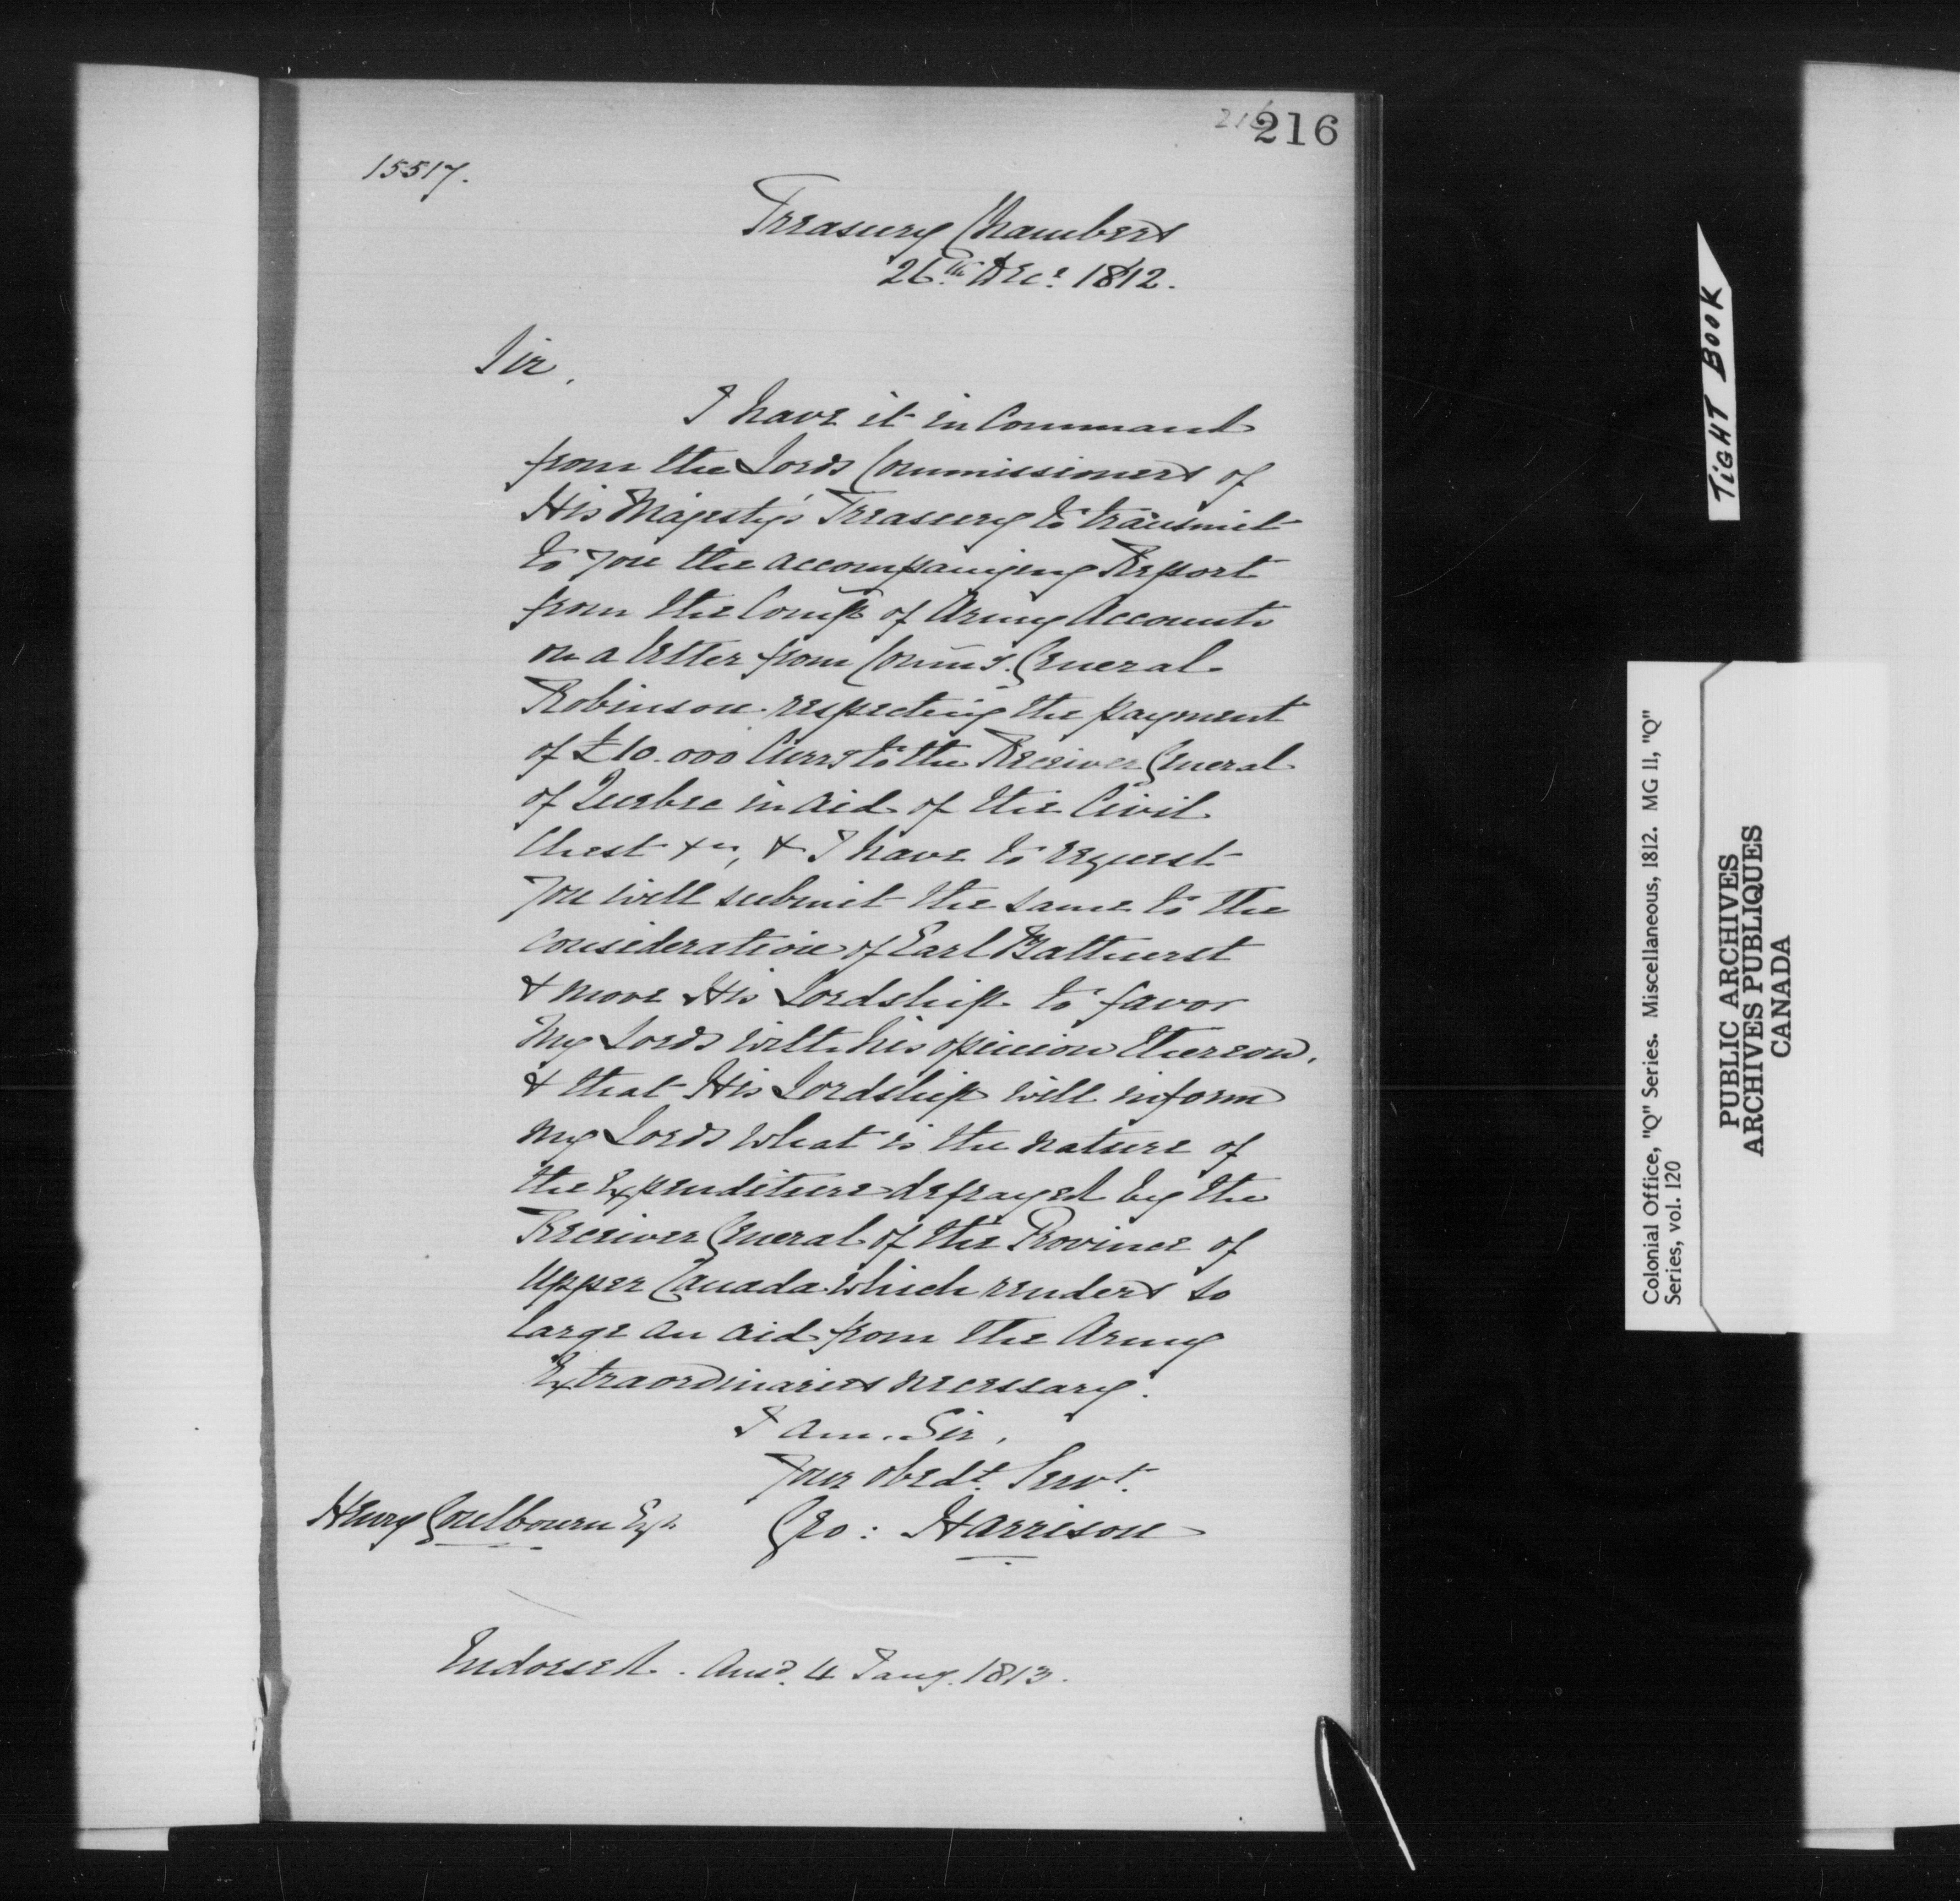 216
216
15517.
Treasury Chambers
26th Decr 1812.
Sir,
I have it in Command
from the Lords Commissioners of
His Majesty's Treasury to transmit
to you the accompanying Report
from the Comp. of Army Accounts
on a letter from Commy. General
Robinson respecting the payment
of £10.000 Curry to the Receiver General
of Quebec in aid of the Civil
Chest &c, & I have to request
you will submit the same to the
consideration of Earl Bathurst
& move His Lordship to favor
My Lords with his opinion thereon,
& that His Lordship will inform
My Lords what is the nature of
the Expenditure defrayed by the
Receiver General of the Province of
Upper Canada which renders so
large an aid from the Army
Extraordinaries necessary.
I am, Sir,
Your obedt. Servt.
Henry Goulbourn Esqr. Geo: Harrison
Endorsed. Ansd. 4 Jany. 1813.
TiGHT BOOK
Colonial Office, "Q" Series. Miscellaneous, 1812. MG 11, "Q"
Series, vol. 120
PUBLIC ARCHIVES
ARCHIVES PUBLIQUES
CANADA